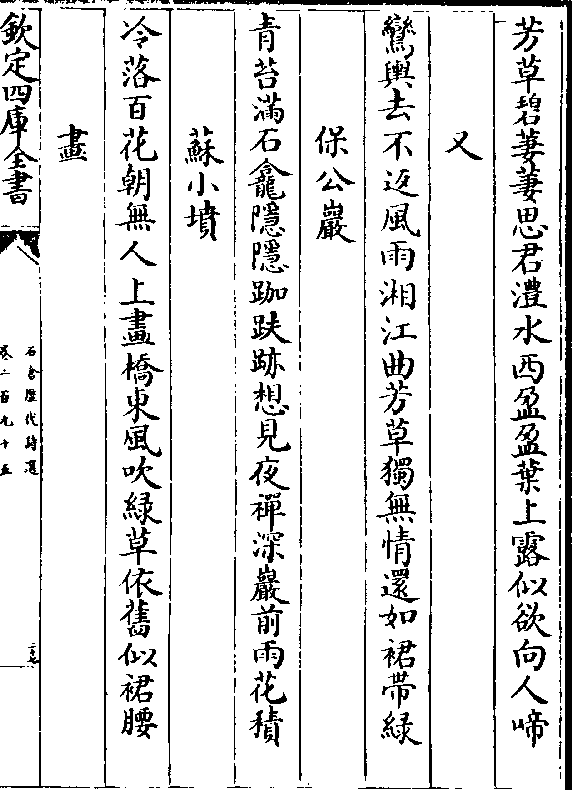 芳草碧萋萋思君澧水西盈盈葉上露似欲向人啼
又
鸞輿去不返風雨湘江曲芳草獨無情還如裙帶綠
保公巖
青苔滿石龕隱隱跏趺跡想見夜禪深巖前雨花積
蘇小墳
冷落百花朝無人上畫橋東風吹綠草依舊似裙腰
畫
欽定四庫全書
石倉歷代詩選
卷二百九十五